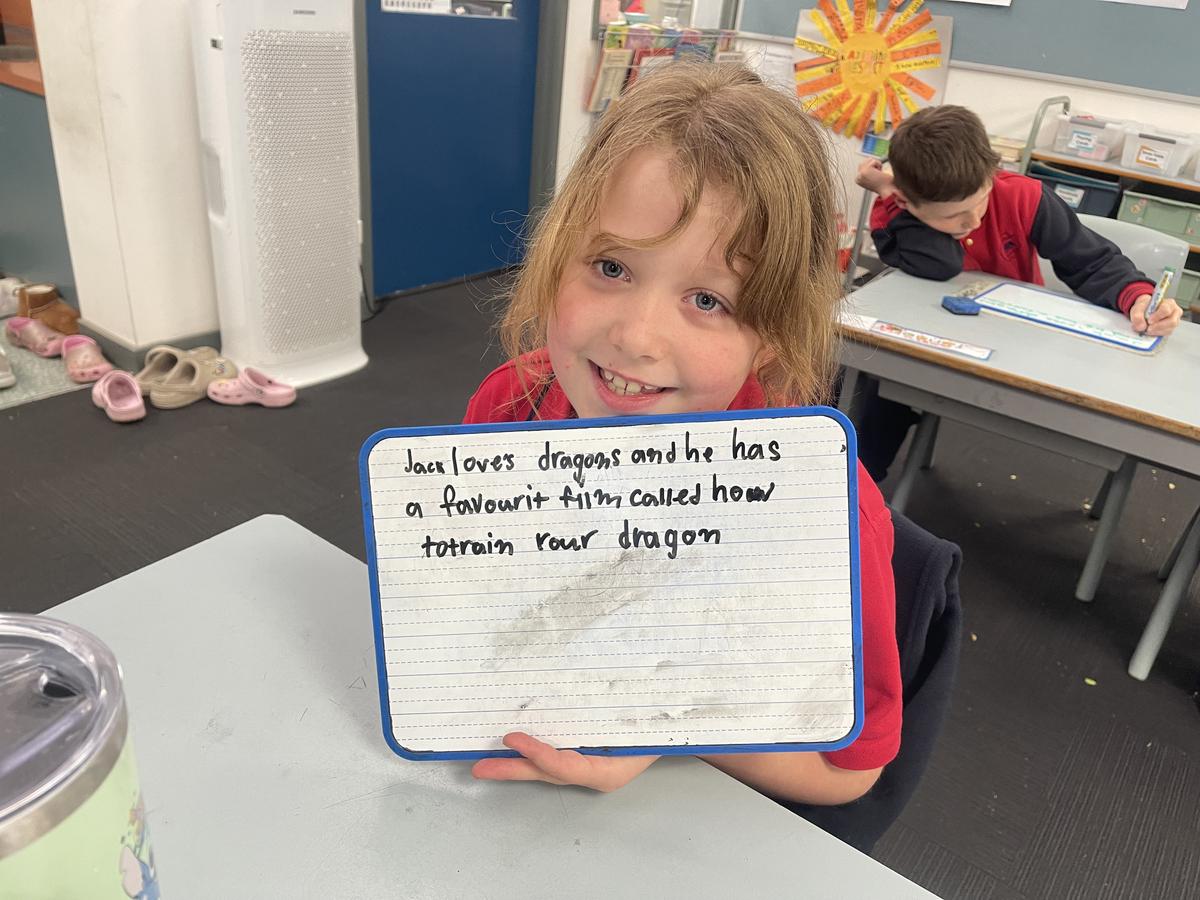 Jack loves dragons and he has
a favourit film called how
totrain rour dragon
SAMSUNG